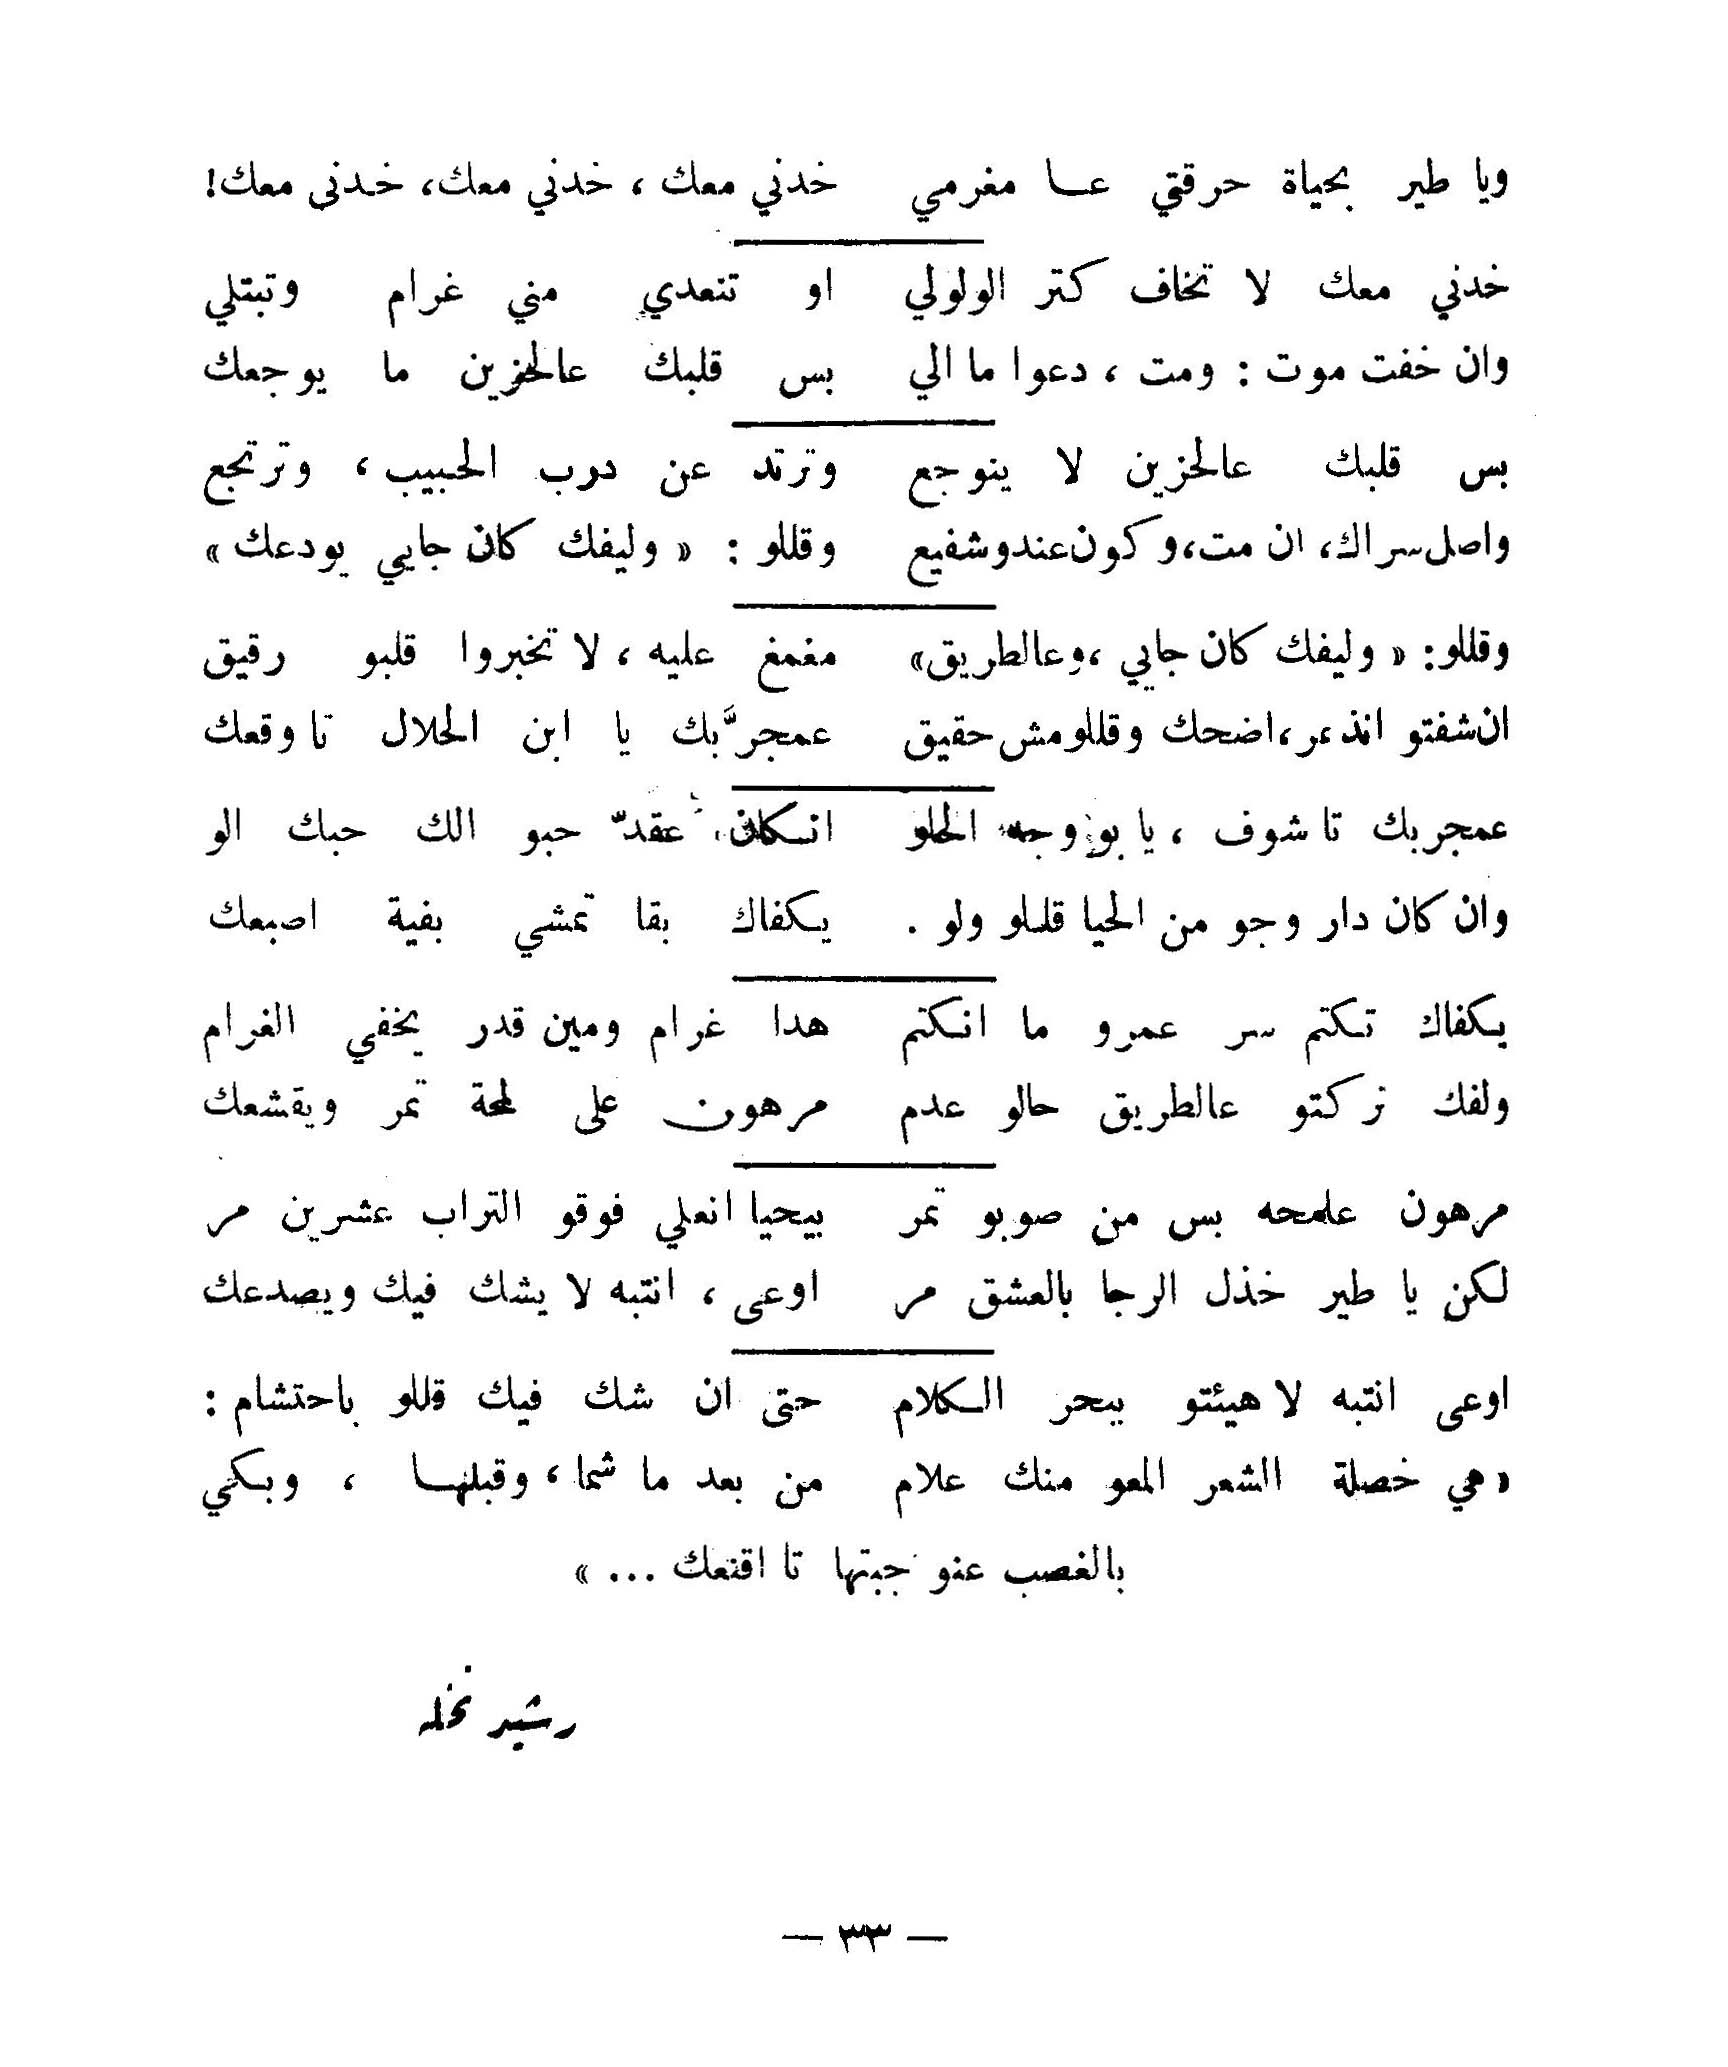 ويا طير بحياة حرقتي عا مغرمي خدني معك ، خدني معك، خدني معك!
خدني معك لا تخاف كتر الولولي او تنعدي مني غرام وتبتلي
وان خفت موت : ومت ، دعوا ما الي بس قلبك عالحزين ما يوجعك
بس قلبك عالحزين لا ينوجع وترتد عن درب الحبيب ، وترتجع
واصل سراك، ان مت، وكون عندو شفيع وقللو : « وليفك كان جايي يودعك »
وقللو: « وليفك كان جايي ،وعالطريق» مغمغ عليه ، لا تخبروا قلبو رقيق
ان شفتو انذعر، اضحك وقللو مش حقيق عمجرَّبك يا ابن الحلال تا وقعك
عمجربك تا شوف ، يا بو وجه الحلو انكان عقدّ حبو الك حبك الو
وان كان دار وجو من الحيا قللو ولو . يكفاك بقا تمشي بفية اصبعك
يكفاك تكتم سر عمرو ما انكتم هدا غرام ومين قدر يخفي الغرام
ولفك تركتو عالطريق حالو عدم مرهون على لمحة تمر ويقشعك
مرهون علمحه بس من صوبو تمر بيحيا انعلي فوقو التراب عشرين مر
لكن يا طير خذل الرجا بالعشق مر اوعى ، انتبه لا يشك فيك ويصدعك
اوعى انتبه لا هيئتو ببحر الكلام حتى ان شك فيك قللو باحتشام :
« هي خصلة الشعر المعو منك علام من بعد ما شما ، وقبلها ، وبكي
بالغصب عنو جبتها تا اقنعك ... »
رشيد نخله
— ٣٣ —